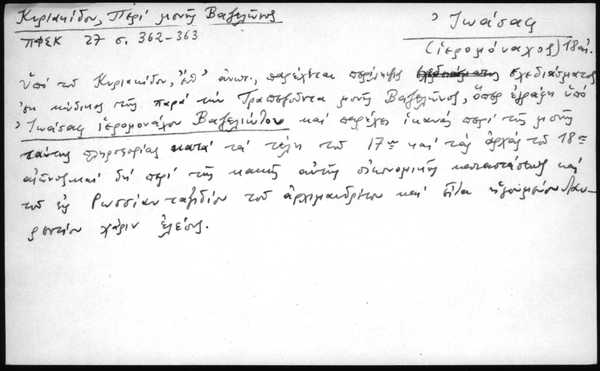 Κυριακίδου, Περὶ μονῆς Βαζελῶνος
Ἰωάσαφ
ΠΦΣΚ 27 σ. 362-363
(ἱερομόναχος) 18 αἰ.
Ὑπὸ τοῦ Κυριακίδου, ἔνθ' ἀνωτ., παρέχεται περίληψις σχεδιάσματος
ἐκ κώδικος τῆς παρὰ τὴν Τραπεζοῦντα μονῆς Βαζελῶνος, ὅπερ ἐγράφη ὑπὸ
Ἰωάσαφ ἱερομονάχου Βαζελιώτου καὶ παρέχει ἱκανὰς περὶ τῆς μονῆς
ταύτης πληροφορίας κατὰ τὰ τέλη τοῦ 17ου καὶ τὰς ἀρχὰς τοῦ 18ου
αἰῶνος καὶ δὴ περὶ τῆς κακῆς αὐτῆς οἰκονομικῆς καταστάσεως καὶ
τοῦ εἰς Ρωσσίαν ταξιδίου τοῦ ἀρχιμανδρίτου καὶ εἶτα ἡγουμένου Λαυ-
ρεντίου χάριν ἐλέους.